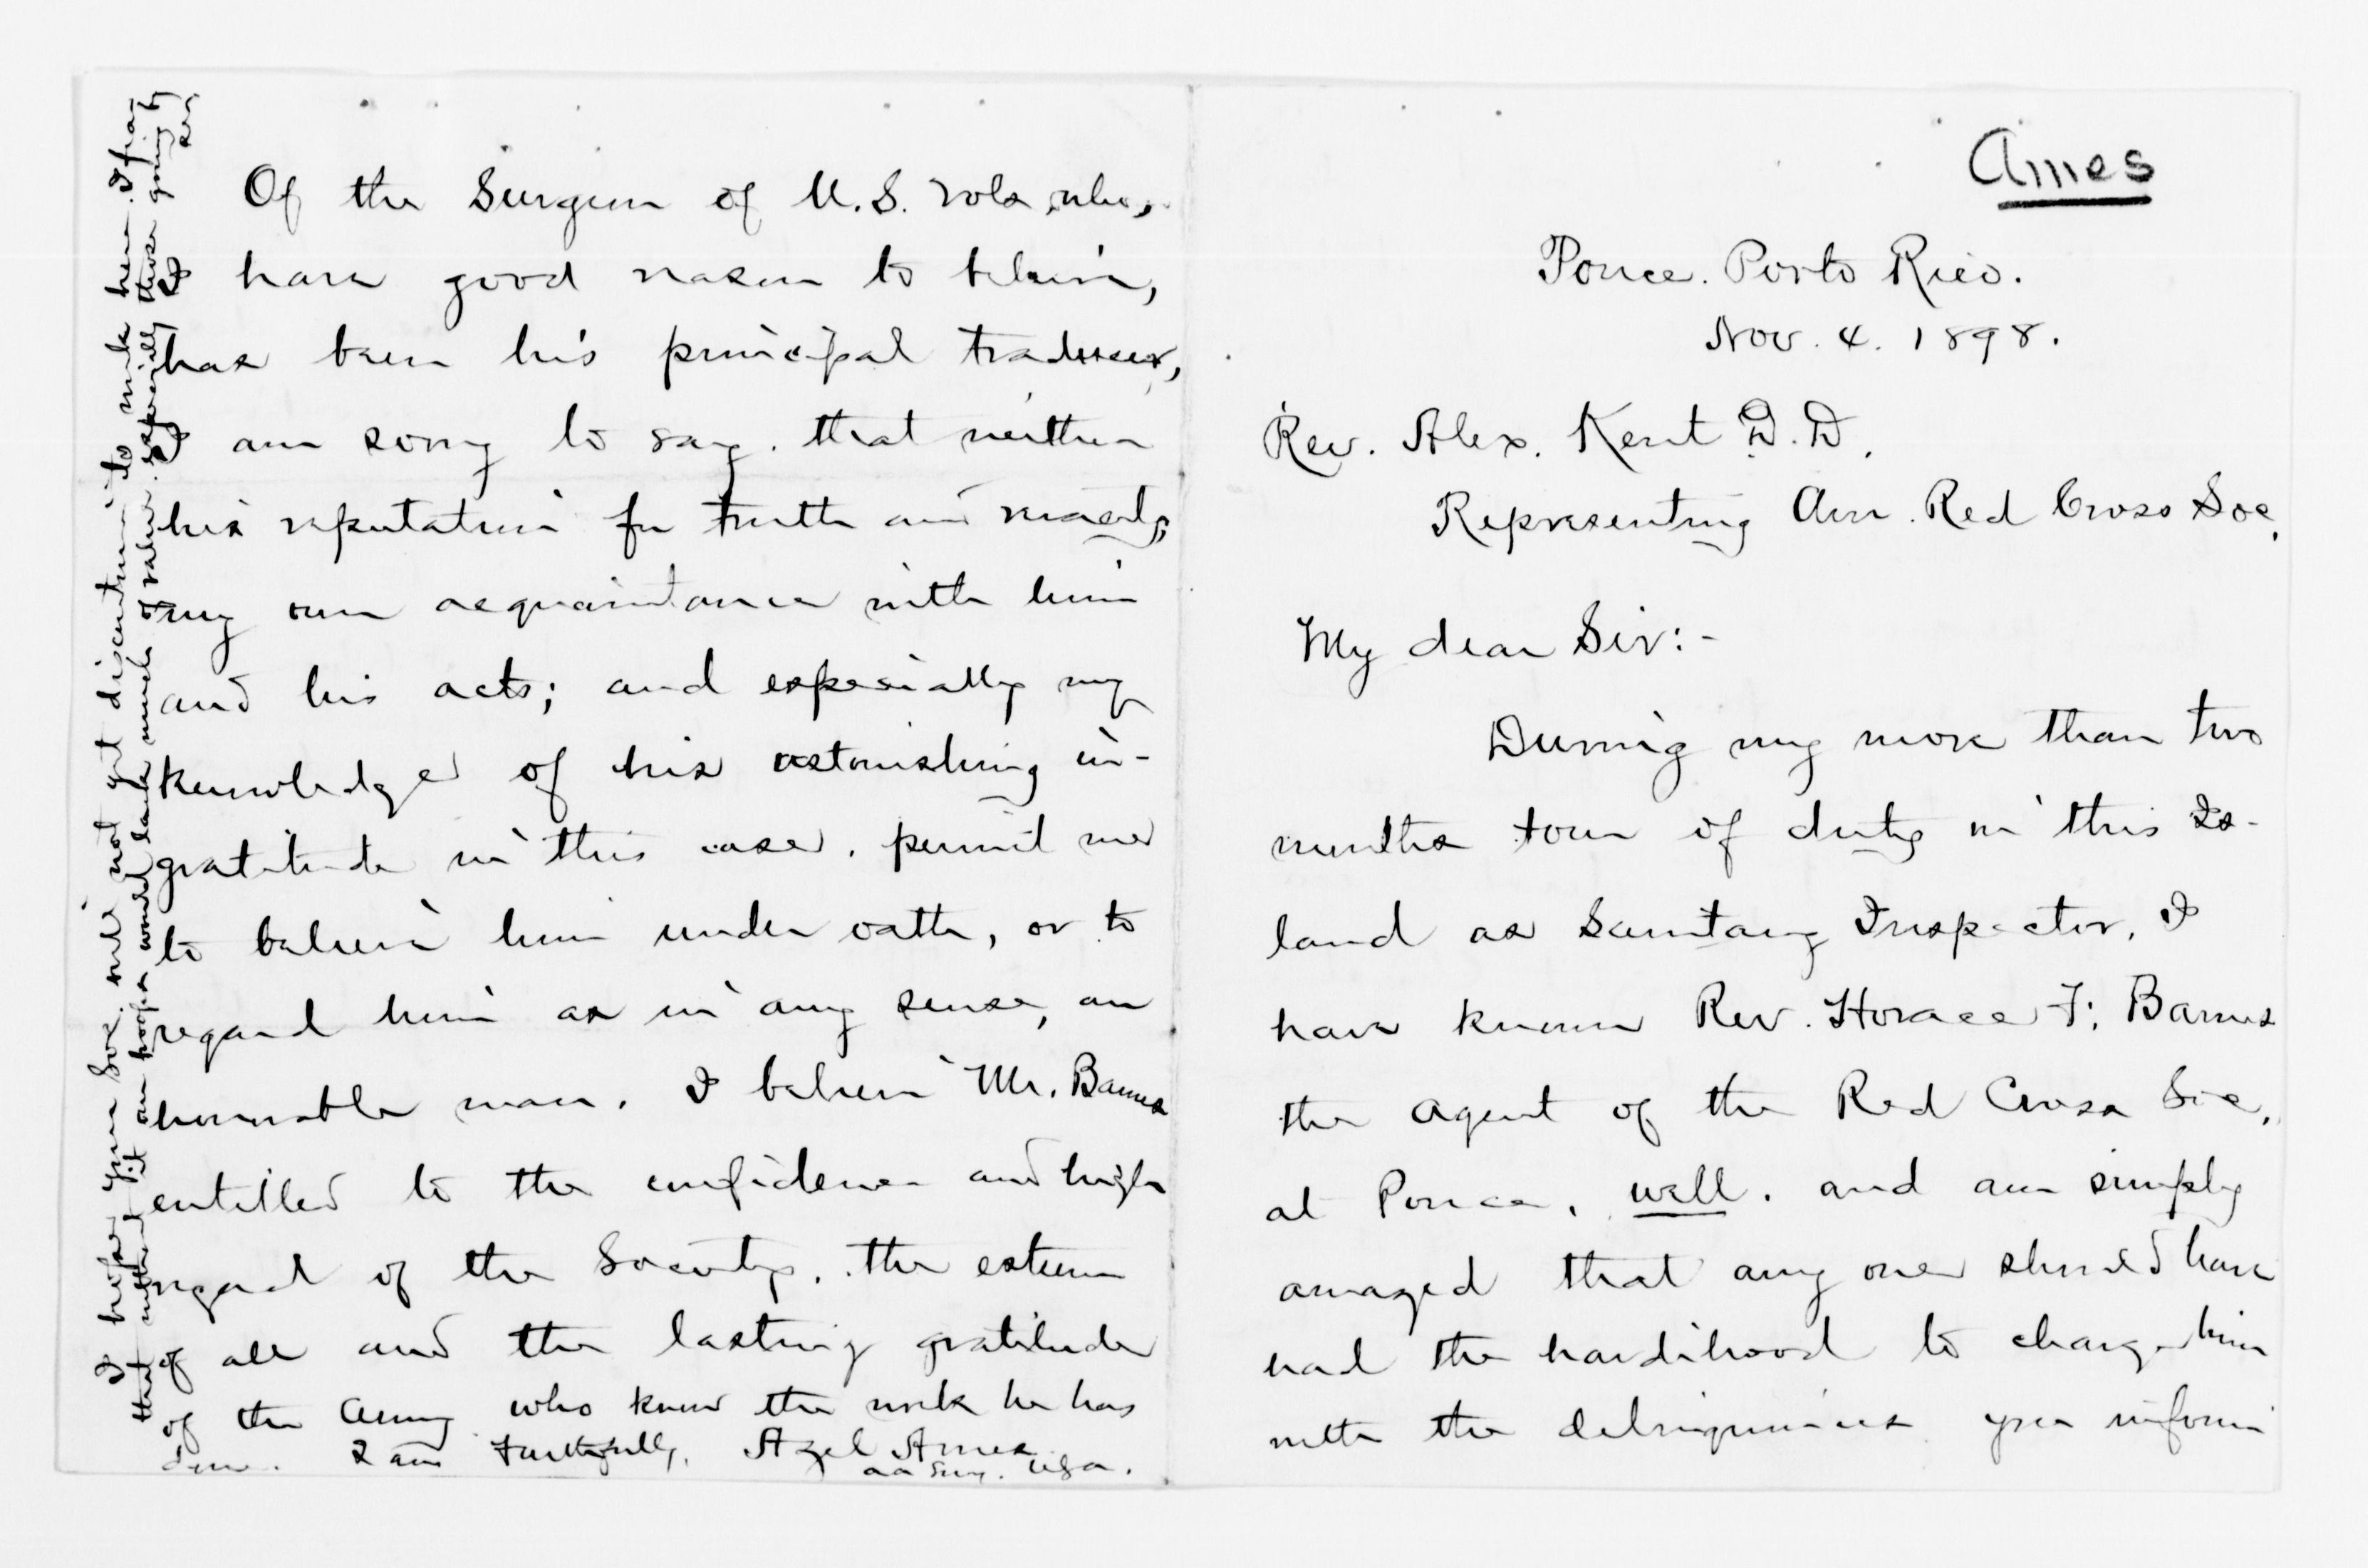 Ames
Ponce. Porto Rico.
Nov. 4. 1898.
Rev. Alex. Kent D.D.
Representing Am. Red Cross Soc.
My dear Sir:-
During my more than two
months tour of duty in this Is-
land as Sanitary Inspector, I
have known Rev. Horace F. Barnes
the agent of the Red Cross Soc.
at Ponce, well. and am simply
amazed that any one should have
had the hardihood to charge him
with the delinquencies you inform
Of the Surgeon of U.S. Vols, who,
I have good reason to believe,
has been his principal traducer,
I am sorry to say. that neither
his reputation for truth and veracity,
my own acquaintance with him
and his acts; and especially my
knowledge of his astonishing in-
gratitude in this case, permit me
to believe him under oath, or to
regard him as in any sense, an
honorable man. I believe Mr. Barnes
entitled to the confidence and high
regard of the Society, the esteem
of all and the lasting gratitude
of the Army who know the work he has
done. I am Faithfully, Azel Ames
aa Surg. USA.
I hope your Soc. will not yet discontinue its work here. I
that without it our hosps would lack much of value. especially those going by
sea,